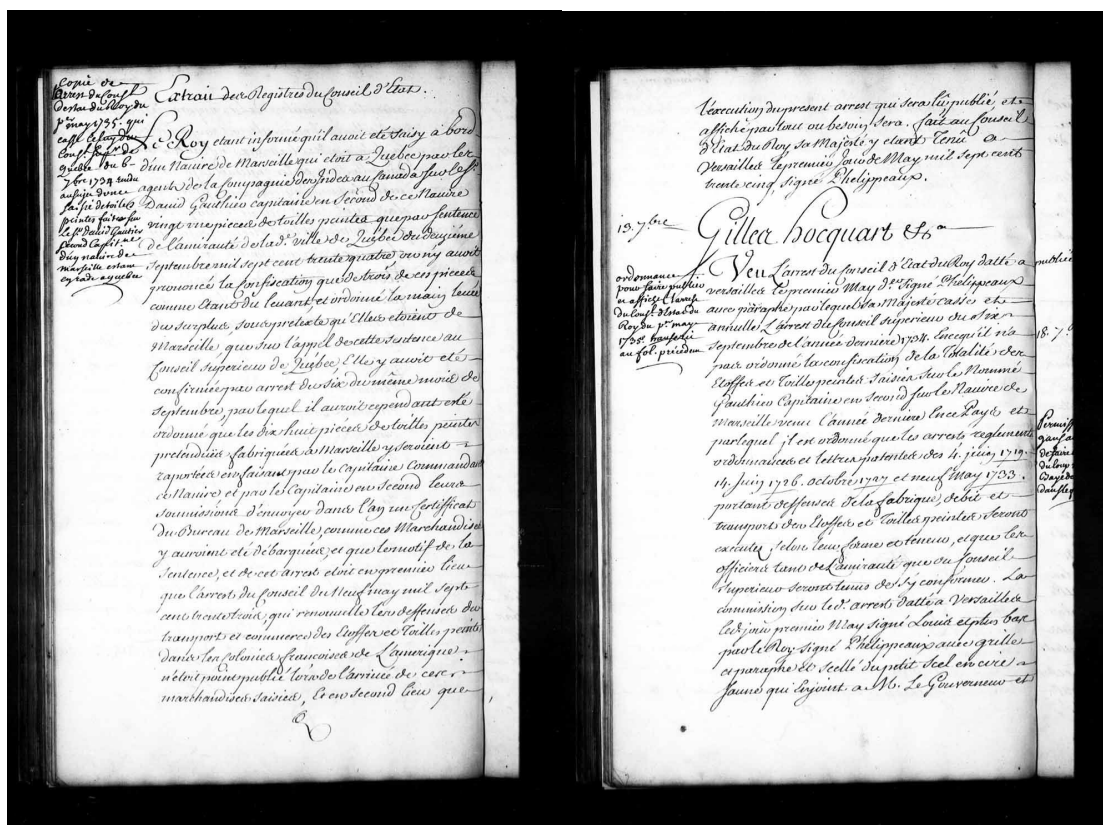 Copie de
Larrest du Consl
destat du Roy du
per may 1735. qui
casse celuy du
Consl Supr de
Quebec du 6.
7bre 1734 rendu
au sujet d'une
saisie de toiles
peintes faite sur
le Sr David Gautier
Second Capit.ne
d'un navire de
Marseille estant
en rade a quebec
Extrait des Registres du Conseil d'Etat.
Le Roy etant informé qu'il auroit eté saisy à bord
d'un Navire de Marseille qui etoit a Quebec par les
agents de la Compagnie des Indes au Canada sur le Sr.
David Gauthier capitaine en Second de ce Navire
vingt une pieces de toilles peintes que par sentence
de l'amirauté de lade. ville de Quebec du deuxiéme
septembre mil sept cent trente quatre on ny auroit
prononcé la Confiscation que de trois de ces pieces
comme Etant du leuant et ordonné la main leuée
du surplus, sous pretexte qu'Elles etoient de
Marseille que sur l'appel de cette sentence au
Conseil Supérieur de Québec Elle y auroit eté
confirmée par arrest du six du même mois de
septembre, par lequel il auroit cependant esté
ordonné que les dix huit piéces de toilles peintes
pretendües fabriquées à Marseille y seroient
raportées en faisant par le Capitaine Commandant
ce Nauire et par le Capitaine en Second leurs
soumissions d'envoyer dans l'an un Certifficat
du Bureau de Marseille, comme ces Marchandises
y auroient eté débarquées, et que le motif de la
sentence, et de cet arrest etoit en premier lieu
que l'arrest du Conseil du Neuf may mil sept
cent trente trois, qui renouvelle les deffenses du
transport et commerce des Etoffes et Toilles peintes
dans les Colonies francoises de L'amerique
n'étoit point publié lors de l'arrivée de ces
marchandises saisies, Et en second lieu que
l'execution du present arrest qui sera lû publié, et
affiché partout ou besoin sera. fait au Conseil
d'Etat du Roy sa Majesté y etant Tenû a
Versailles le premier Jour de May mil sept cent
trente cinq signé Phelippeaux.
13. 7bre
Gilles hocquart &a
ordonnance
pour faire publier
et afficher larrest
du Consl d'Estat du
Roy du pr may
1735 transcrit
au fol. précedent
Veu L'arrest du Conseil d'Etat du Roy datté a
versailles le premier May der Signé Phelippeaux
avec paraphe par lequel sa Majesté casse et
annulle L'arrest du Conseil superieur du six
septembre de l'année derniere 1734. En ce qu'il n'a
pas ordonné la confiscation de la Totalité des
Etoffes et Toilles peintes saisies sur le Nommé
Gauthier Capitaine en second sur le Nauire de
Marseille venu l'année derniere En ce Pays et
par lequel il est ordonné que les arrests reglements
ordonnances et lettres patentes des 4. juin 1719.
14. Juin 1726. octobre 1727 et neuf May 1733.
portant deffenses de la fabrique, debit et
transport des Etoffes et Toilles peintes seront
executés selon leur forme et teneur, et que les
officiers tant de L'amirauté que du Conseil
superieur seront tenus de s'y conformer. La
commission sur led. arrest datté a Versailles
led. jour premier May signé Louis et plus bas
par le Roy signé Phelippeaux avec grille
et paraphe et scellé du petit scel en cire
Jaune qui Enjoint a M. Le Gouverneur et
publié
18. 7
Permiss